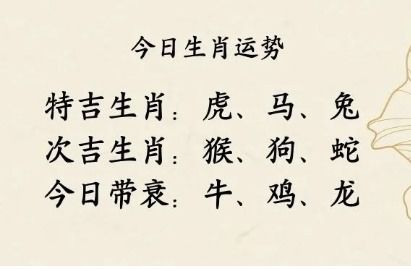 今日生肖运势
特吉生肖：虎、马、兔
次吉生肖：猴、狗、蛇
今日带衰：牛、鸡、龙